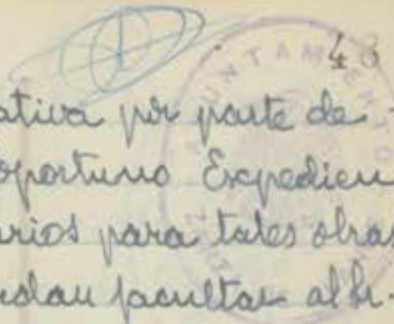 43
AYUNTAMIENTO
ativa por parte de -
oportuno Expedien
arios para tales obras
rdan facultar al Sr.-